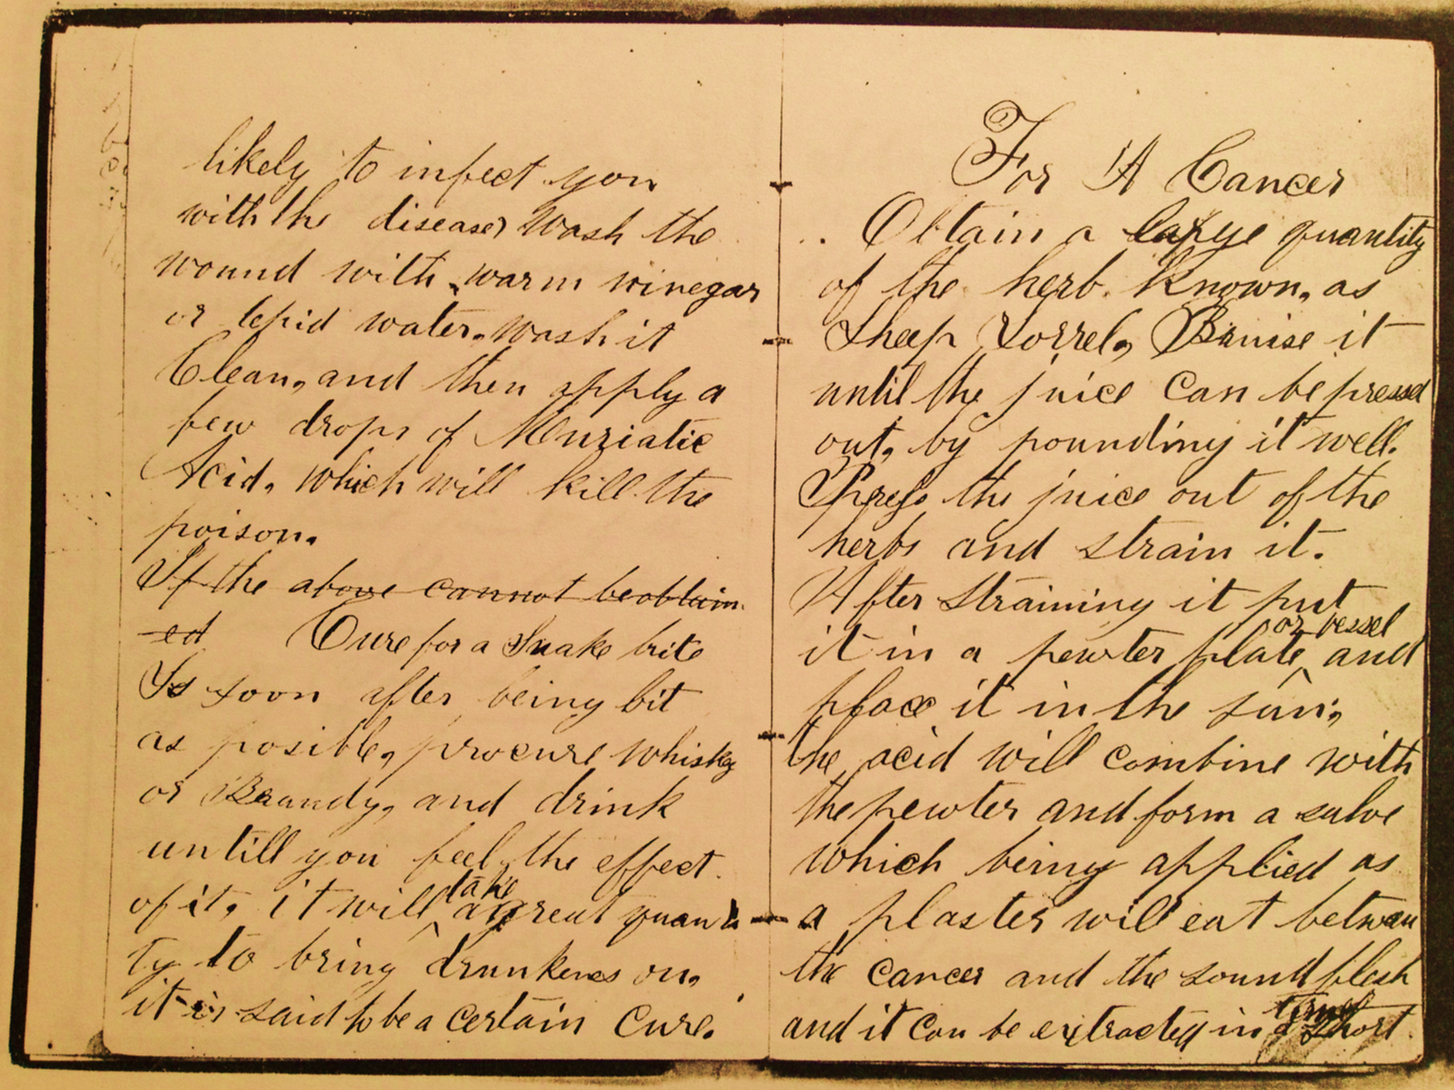 likely to infect you
with the disease, Wash the
wound with warm vinegar
or tepid water. wash it
Clean, and then apply a
few drops of Muriatic
Acid, which will kill the
poison.
If the above cannot be obtain
ed Cure for a Snake bite
As soon after being bit
as posible, procure whisky
or Braandy, and drink
untill you feel the effect
of it, it will take a great quanti
ty to bring drunkenes on,
it is said to be a certain Cure.
For A Cancer
Obtain a large quantity
of the herb known, as
Sheep Sorrel, Bruise it
until the juice can be pressed
out, by pounding it well.
Press the juice out of the
herbs and strain it.
After straining it put
it in a pewter plate or vessel and
place it in the sun,
the acid will combine with
the pewter and form a salve
which being applied as
a plaster will eat between
the cancer and the sound flesh
and it can be extracted in a short time